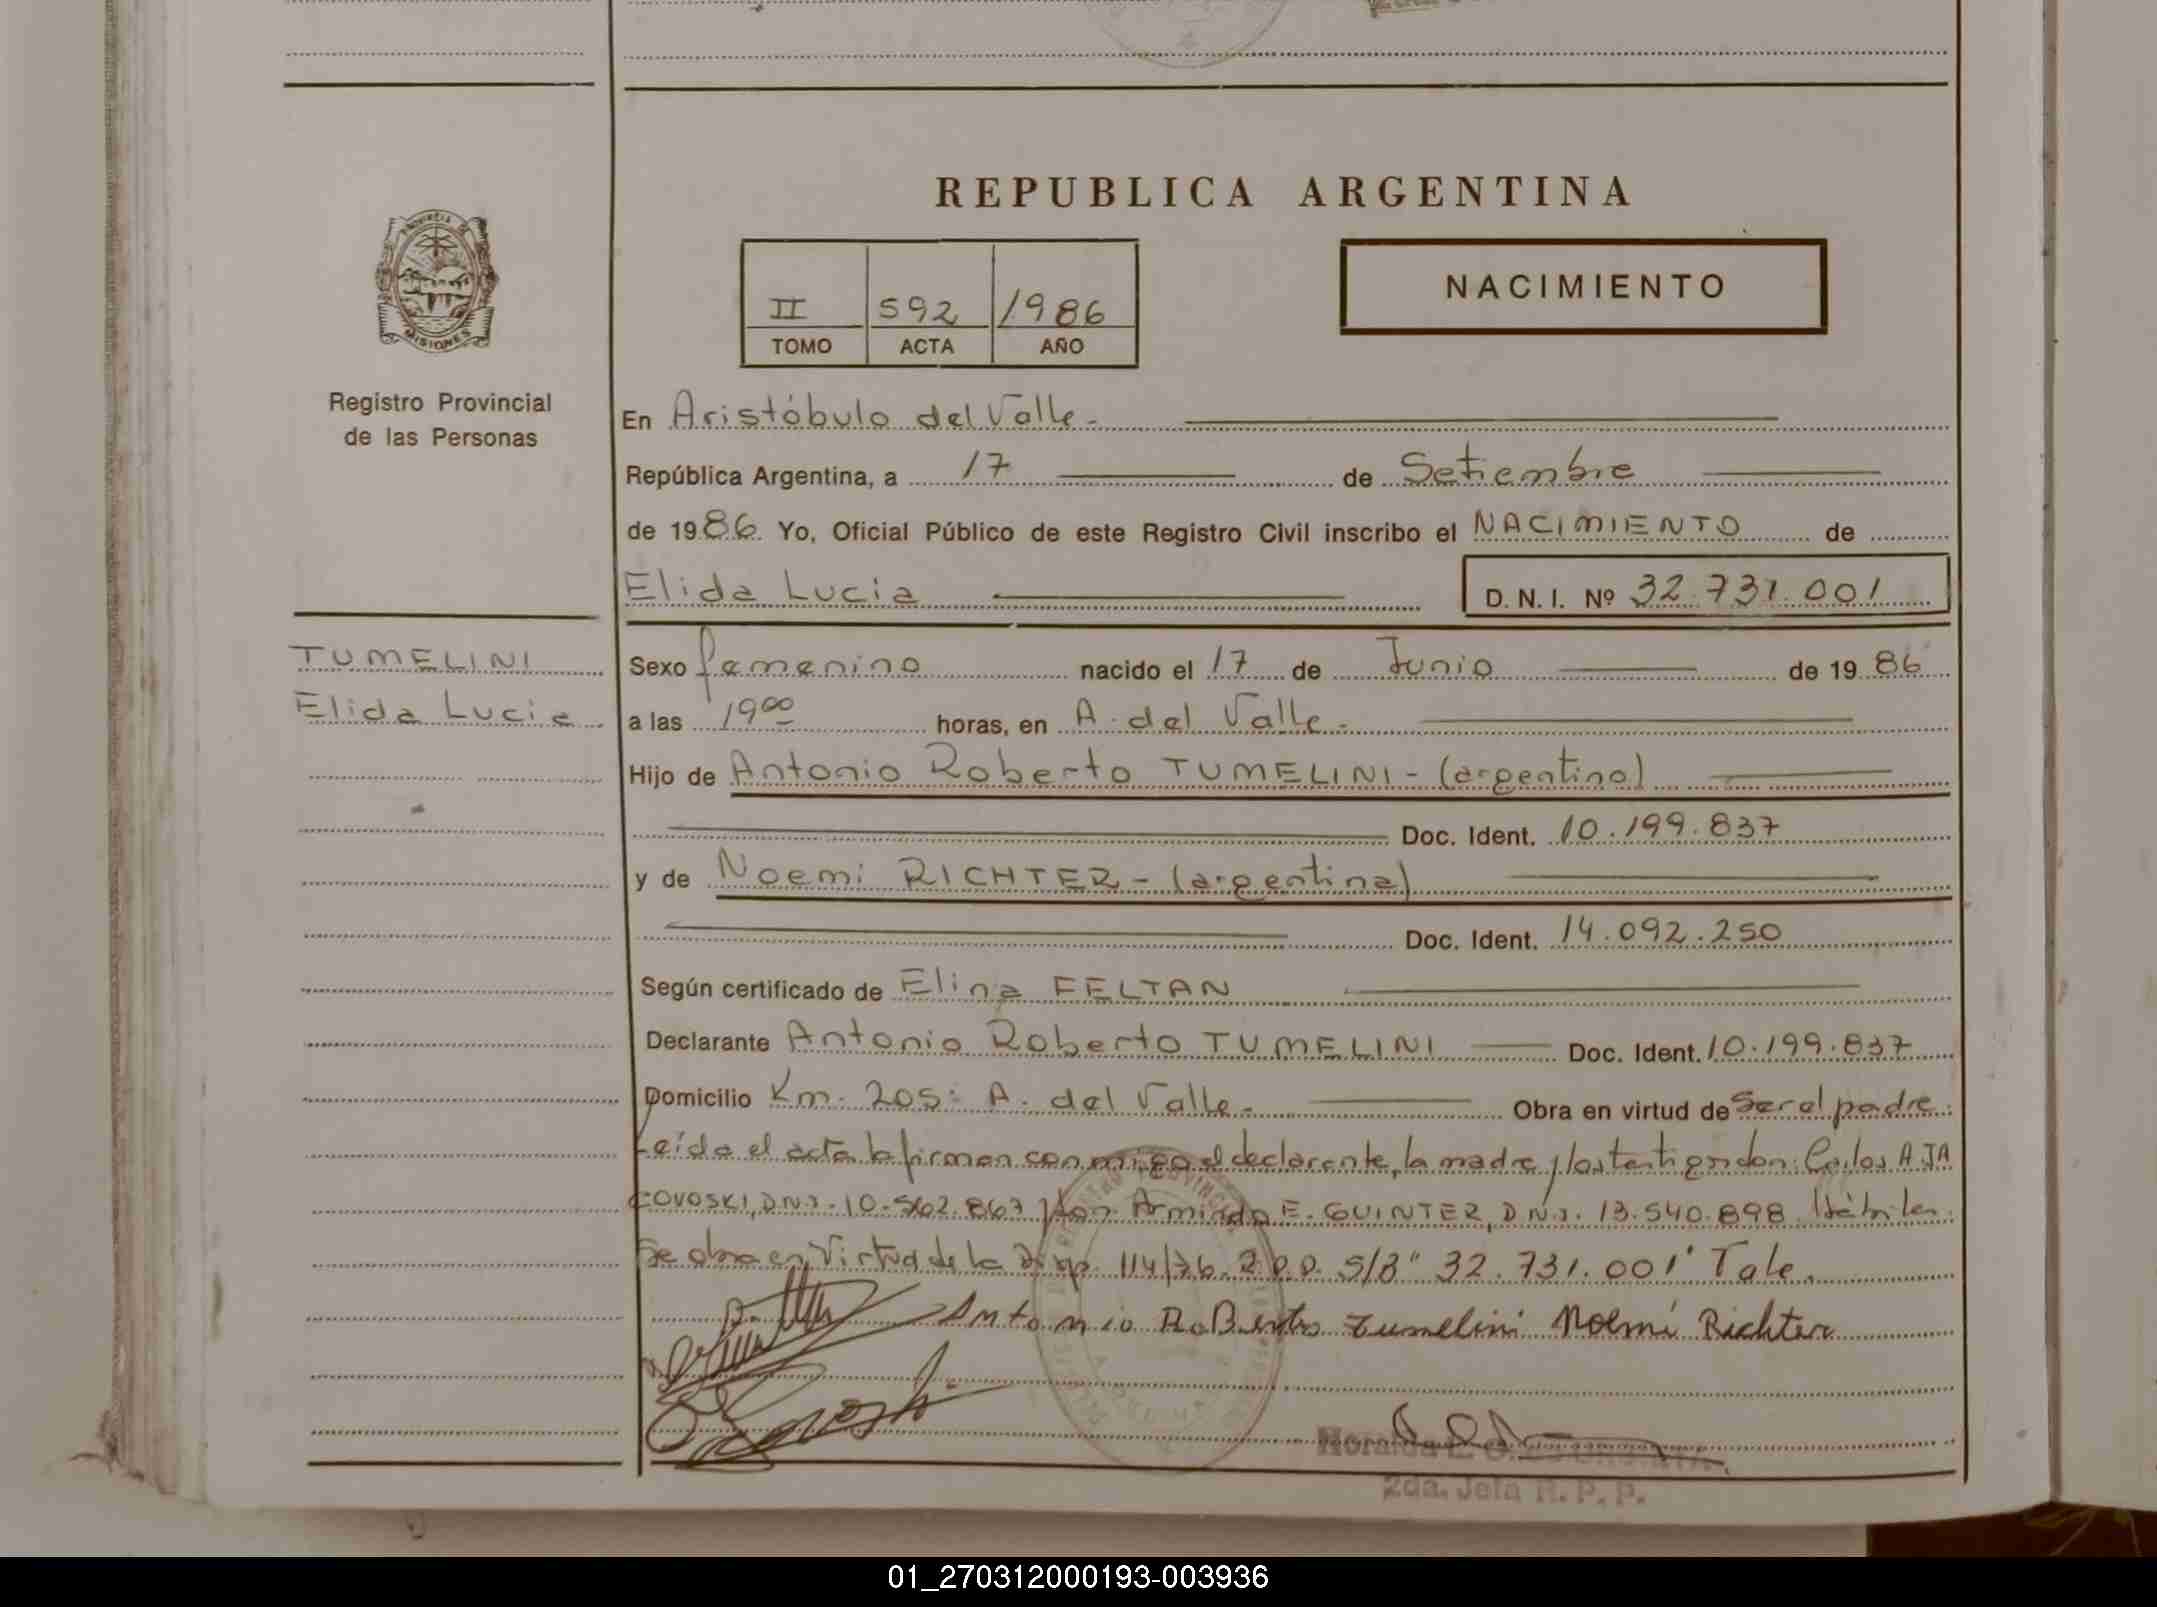 REPUBLICA ARGENTINA
PROVINCIA DE
MISIONES
II 592 1986
TOMO ACTA AÑO
NACIMIENTO
Registro Provincial
de las Personas
En Aristóbulo del Valle.-
República Argentina, a 17 de Setiembre
de 1986. Yo, Oficial Público de este Registro Civil inscribo el NACIMIENTO de
Elida Lucia D. N. I. Nº 32.731.001
TUMELINI
Elida Lucia
Sexo femenino nacido el 17 de Junio de 1986
a las 19 00 horas, en A. del Valle.-
Hijo de Antonio Roberto TUMELINI - (argentino)
Doc. Ident. 10.199.837
y de Noemi RICHTER - (argentina)
Doc. Ident. 14.092.250
Según certificado de Elina FELTAN
Declarante Antonio Roberto TUMELINI Doc. Ident. 10.199.837
Domicilio Km. 205: A. del Valle.- Obra en virtud de Ser el padre.
Leída el acta la firman conmigo el declarante, la madre y los testigos don: Carlos A. JA
COVOSKI, D.N.I. 10.562.867 y don Armindo E. GUINTER, D.N.I. 13.540.898 Hábiles.
Se obra en Virtud de la Disp. 114/76. R.P.P. S/B" 32.731.001" Vale.
Antonio RoBerto Tumelini Noemí Richter
2da. Jefa R. P. P.
01_270312000193-003936